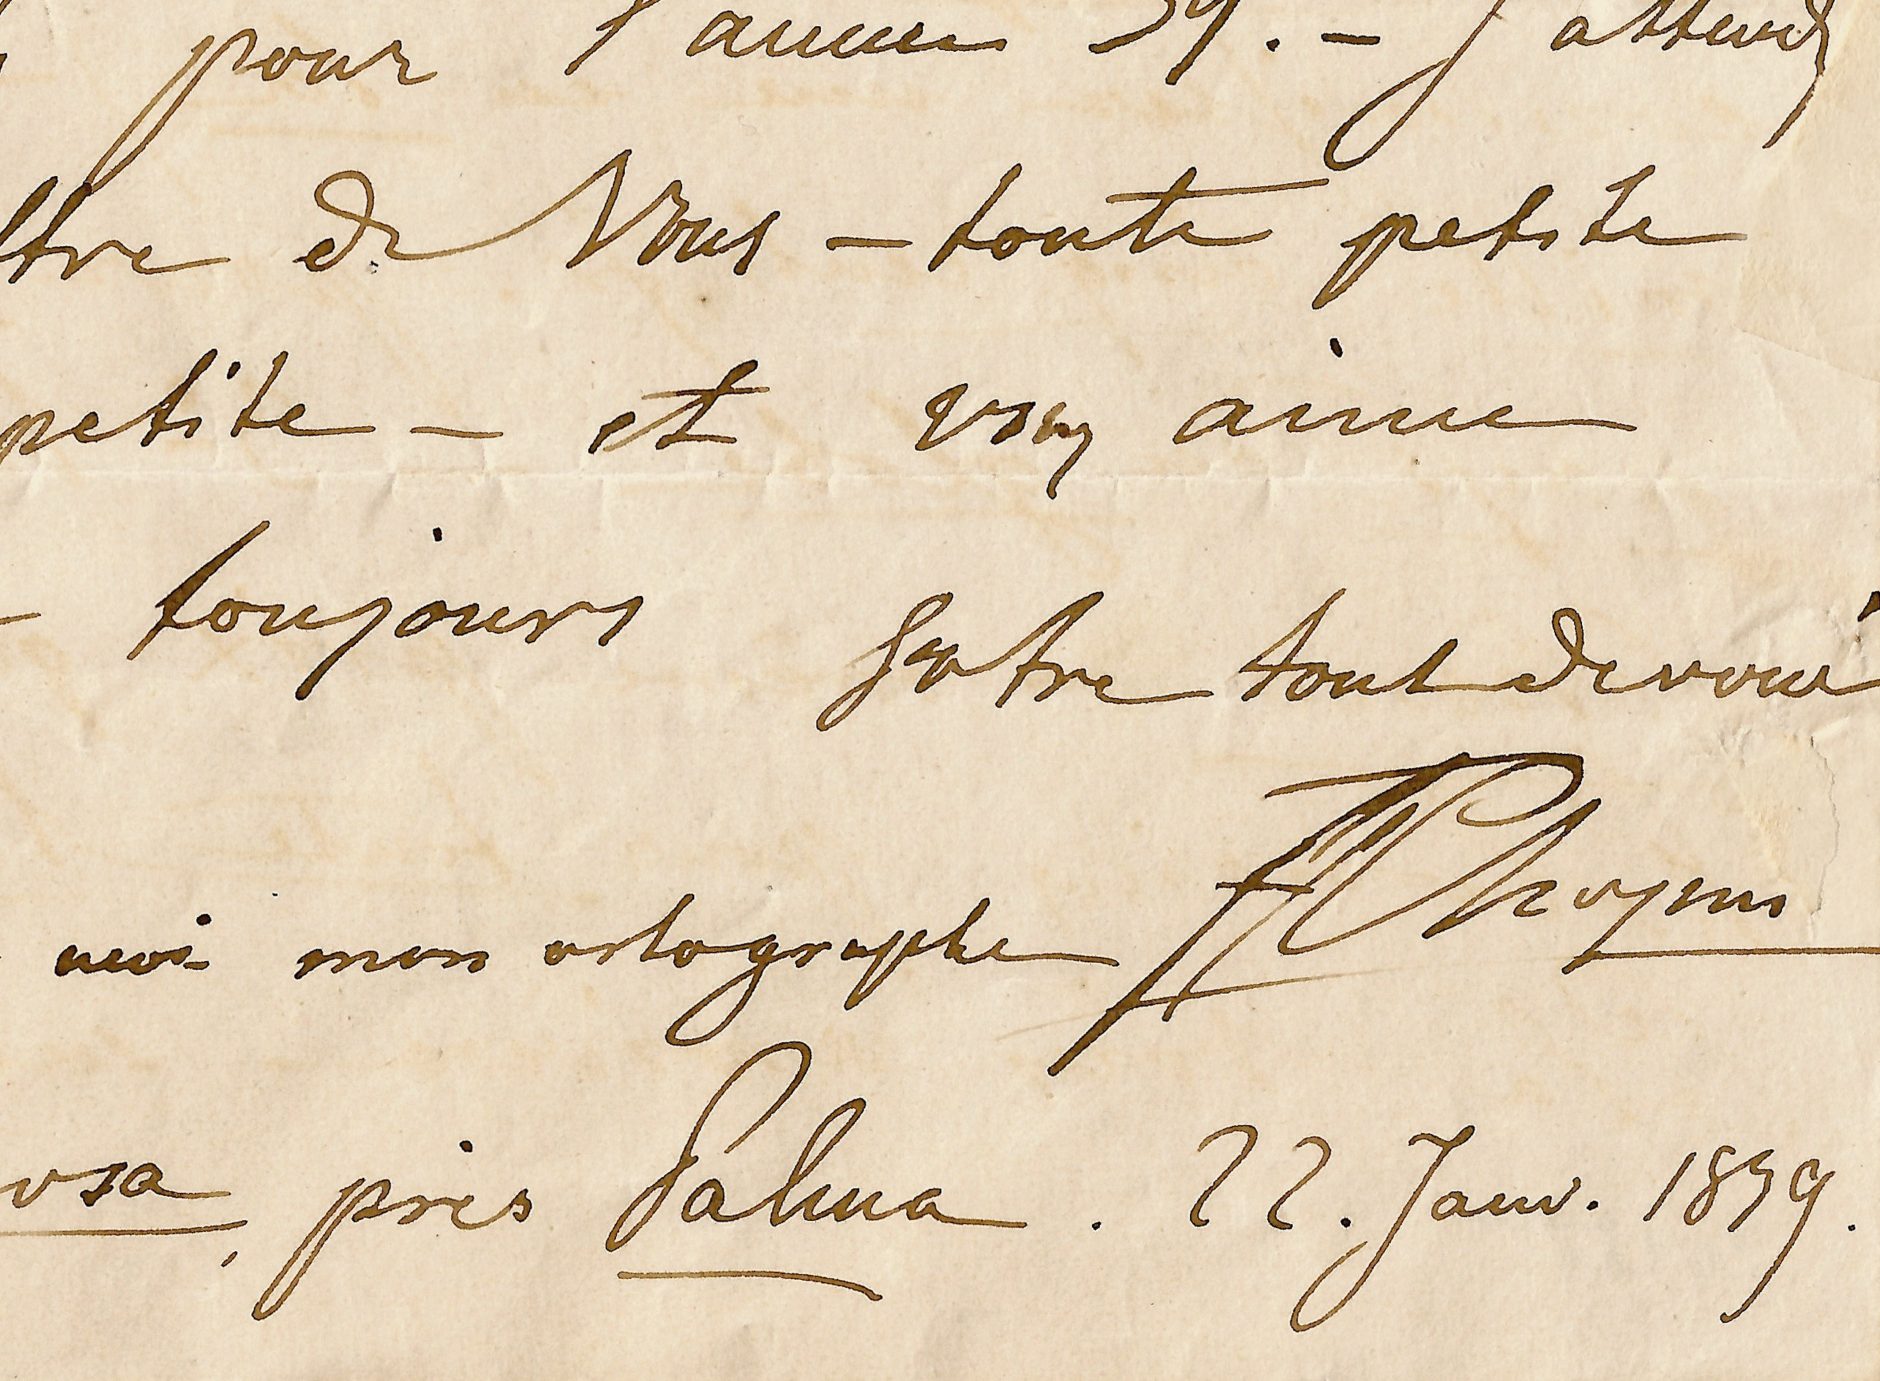 pour l'année 39. – J'attends
ttre de Vous – toute petite
petite – et vous aime
– toujours
Votre tout devoué
FChopin
moi mon ortographe
osa, près Palma. 22. Janv. 1839.